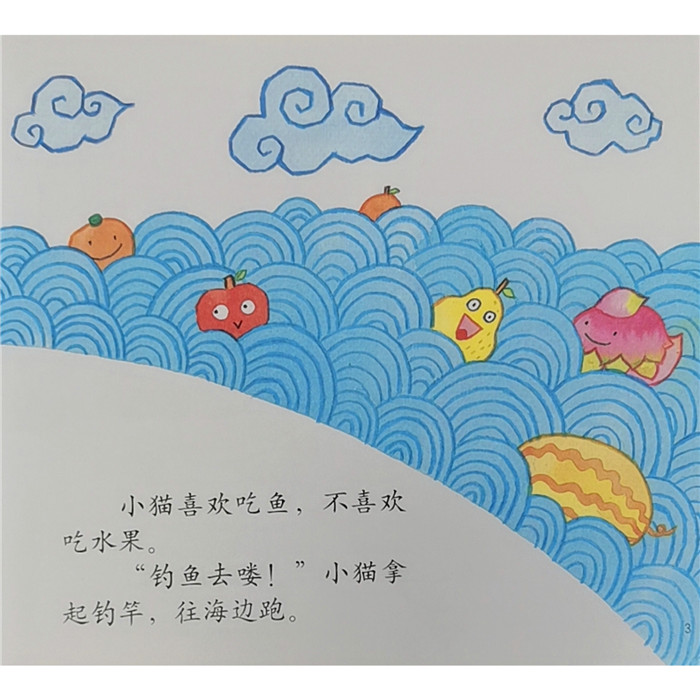 小猫喜欢吃鱼，不喜欢
吃水果。
“钓鱼去喽！”小猫拿
起钓竿，往海边跑。
3